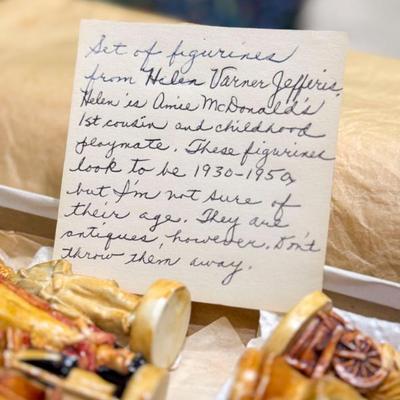 Set of figurines
from Helen Varner Jefferis.
Helen is Amie McDonald's
1st cousin and childhood
playmate. These figurines
look to be 1930-1950s
but I'm not sure of
their age. They are
antiques, however. Don't
throw them away.